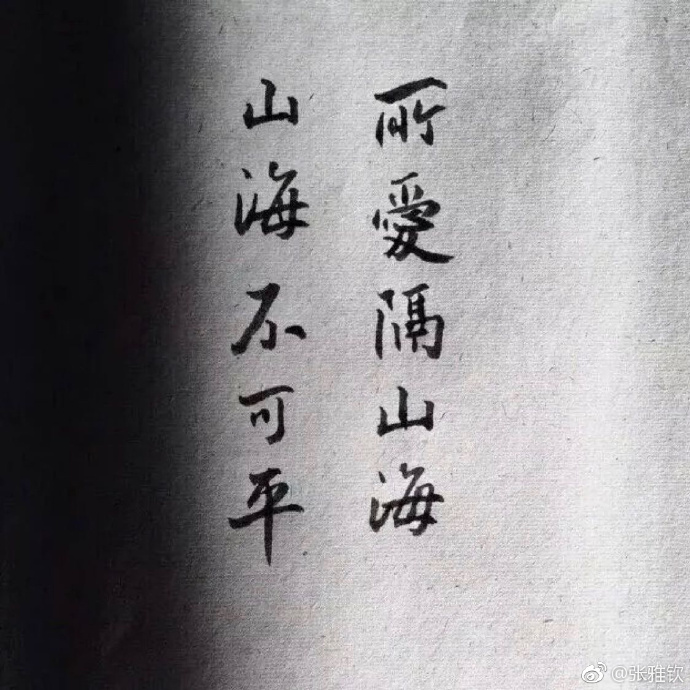 所愛隔山海
山海不可平
@张雅钦